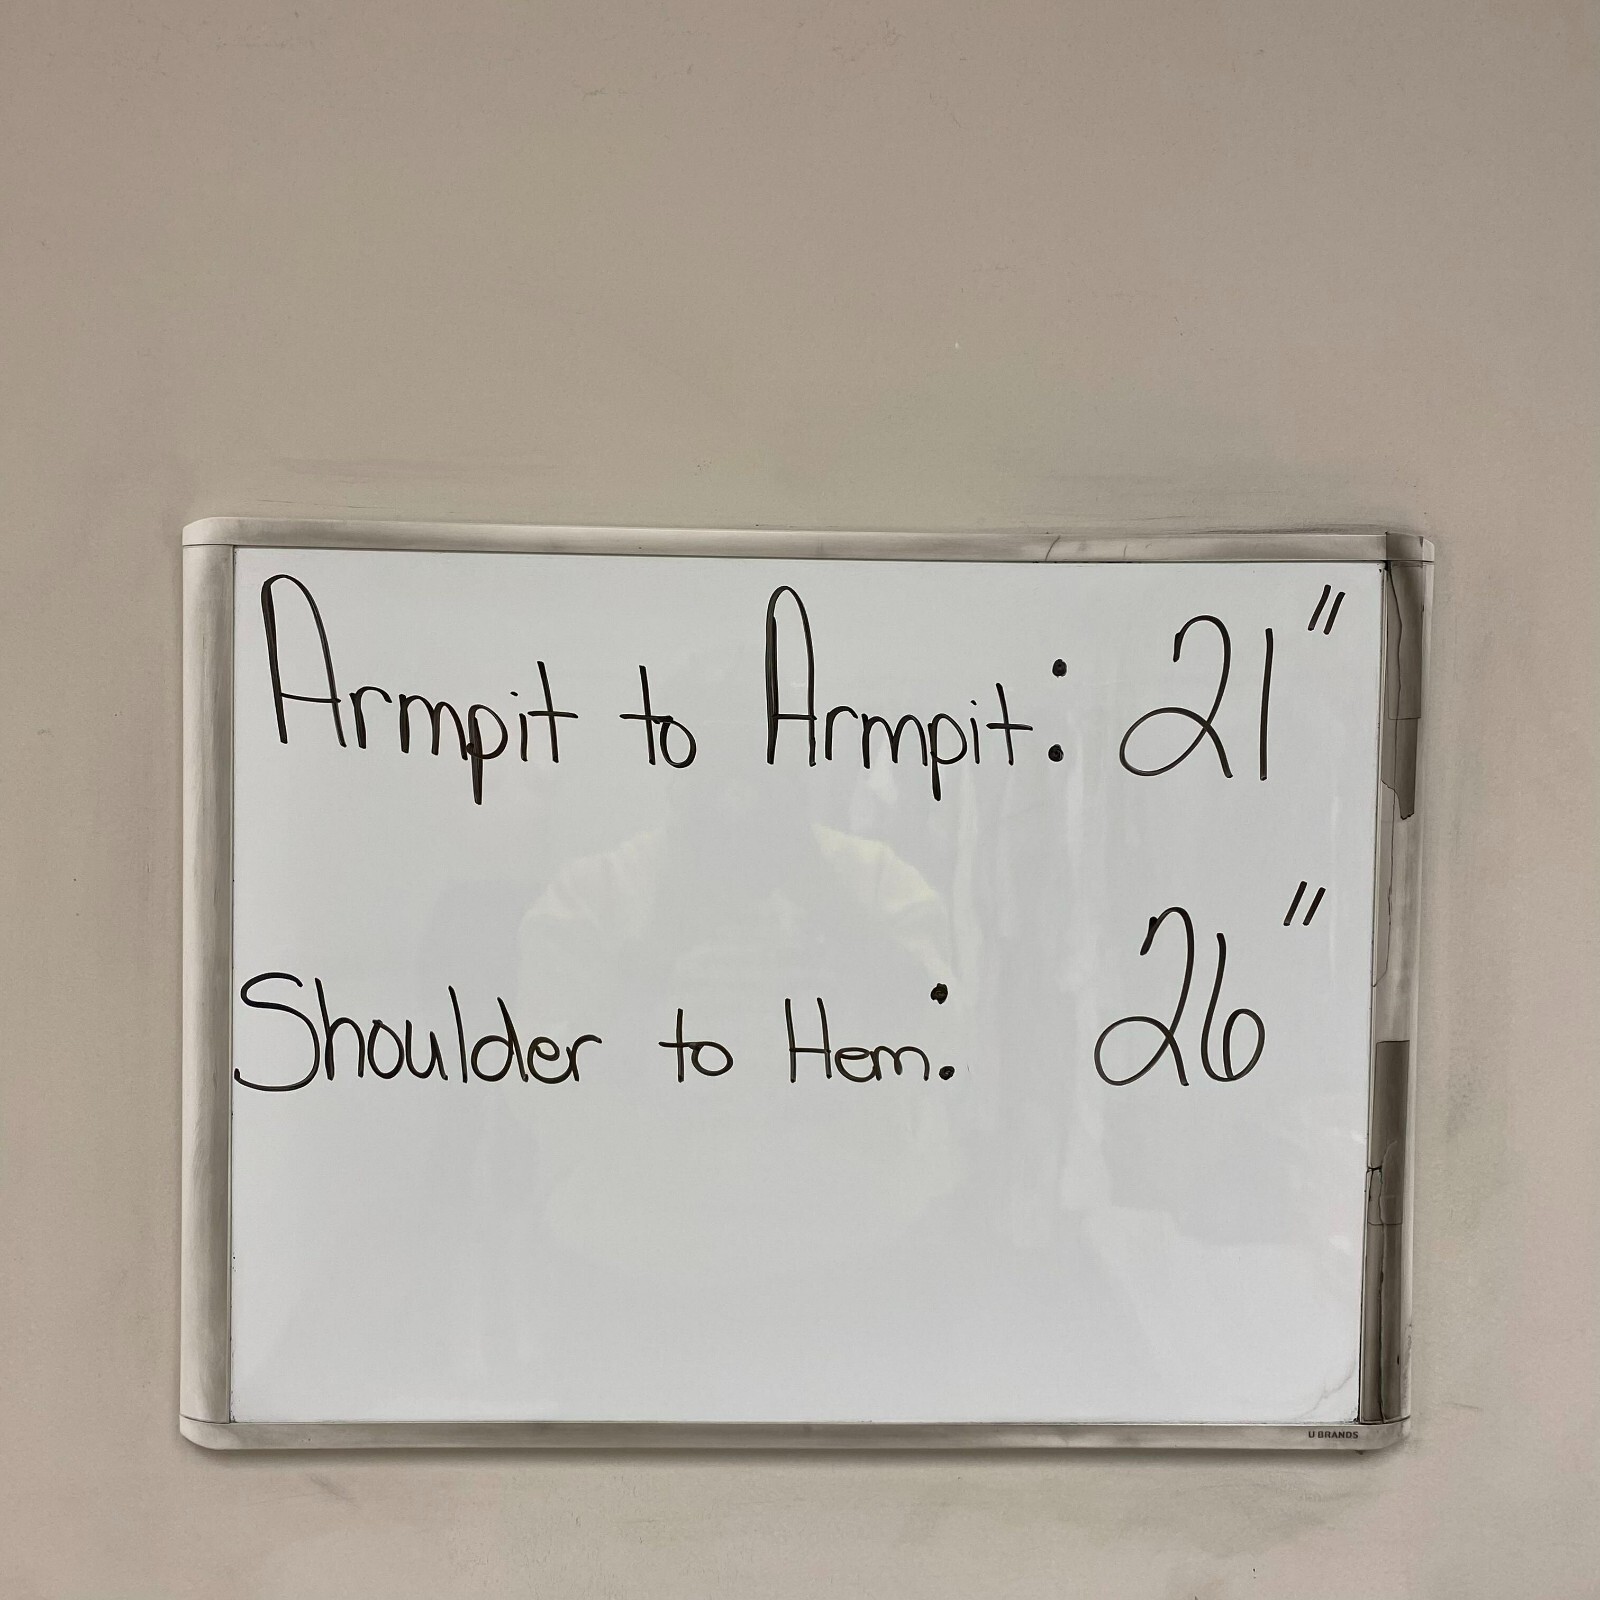 Armpit to Armpit: 21"
Shoulder to Hem: 26"
U BRANDS